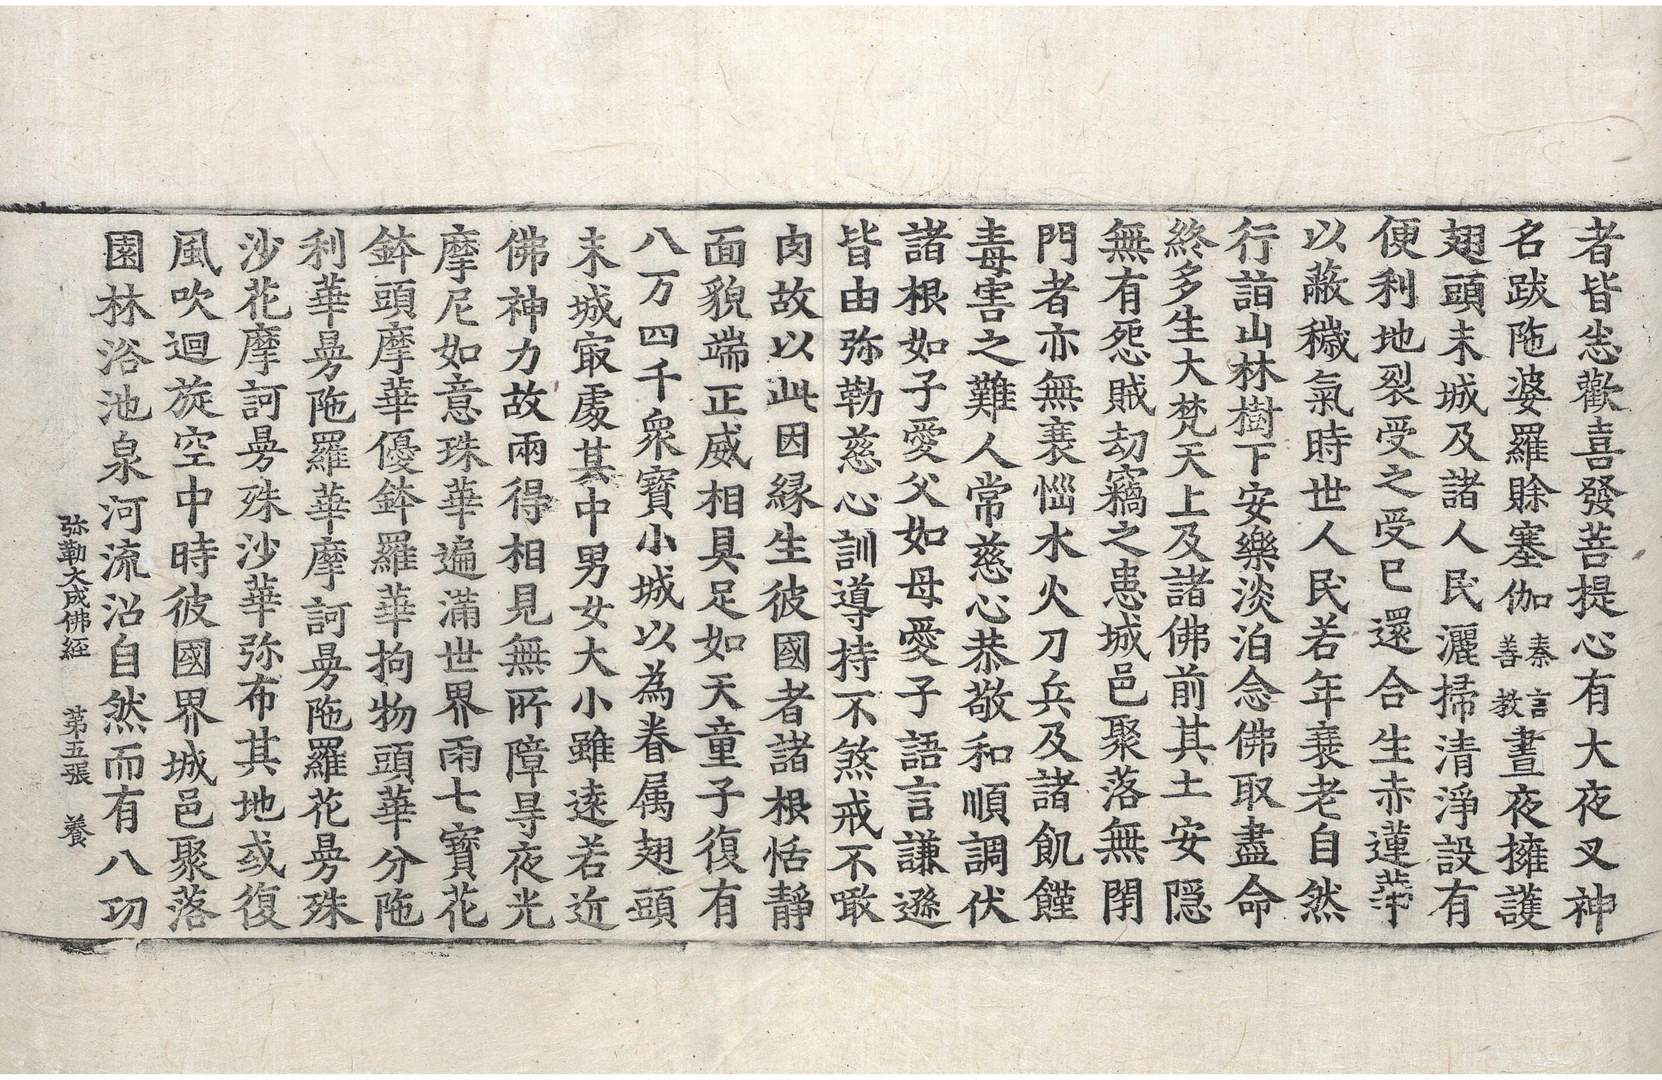 者皆悉歡喜發菩提心有大夜叉神
名跋陁婆羅賒塞伽秦言善教晝夜擁護
翅頭末城及諸人民灑掃清淨設有
便利地裂受之受已還合生赤蓮華
以蔽穢氣時世人民若年衰老自然
行詣山林樹下安樂淡泊念佛取盡命
終多生大梵天上及諸佛前其土安隱
無有怨賊劫竊之患城邑聚落無閉
門者亦無衰惱水火刀兵及諸飢饉
毒害之難人常慈心恭敬和順調伏
諸根如子愛父如母愛子語言謙遜
皆由弥勒慈心訓導持不煞戒不噉
肉故以此因緣生彼國者諸根恬靜
面貌端正威相具足如天童子復有
八万四千眾寶小城以為眷属翅頭
末城㝡處其中男女大小雖遠若近
佛神力故兩得相見無所障㝵夜光
摩尼如意珠華遍滿世界雨七寶花
鉢頭摩華優鉢羅華拘物頭華分陁
利華曼陁羅華摩訶曼陁羅花曼殊
沙花摩訶曼殊沙華弥布其地或復
風吹迴旋空中時彼國界城邑聚落
園林浴池泉河流沼自然而有八功
弥勒大成佛経 第五張 養